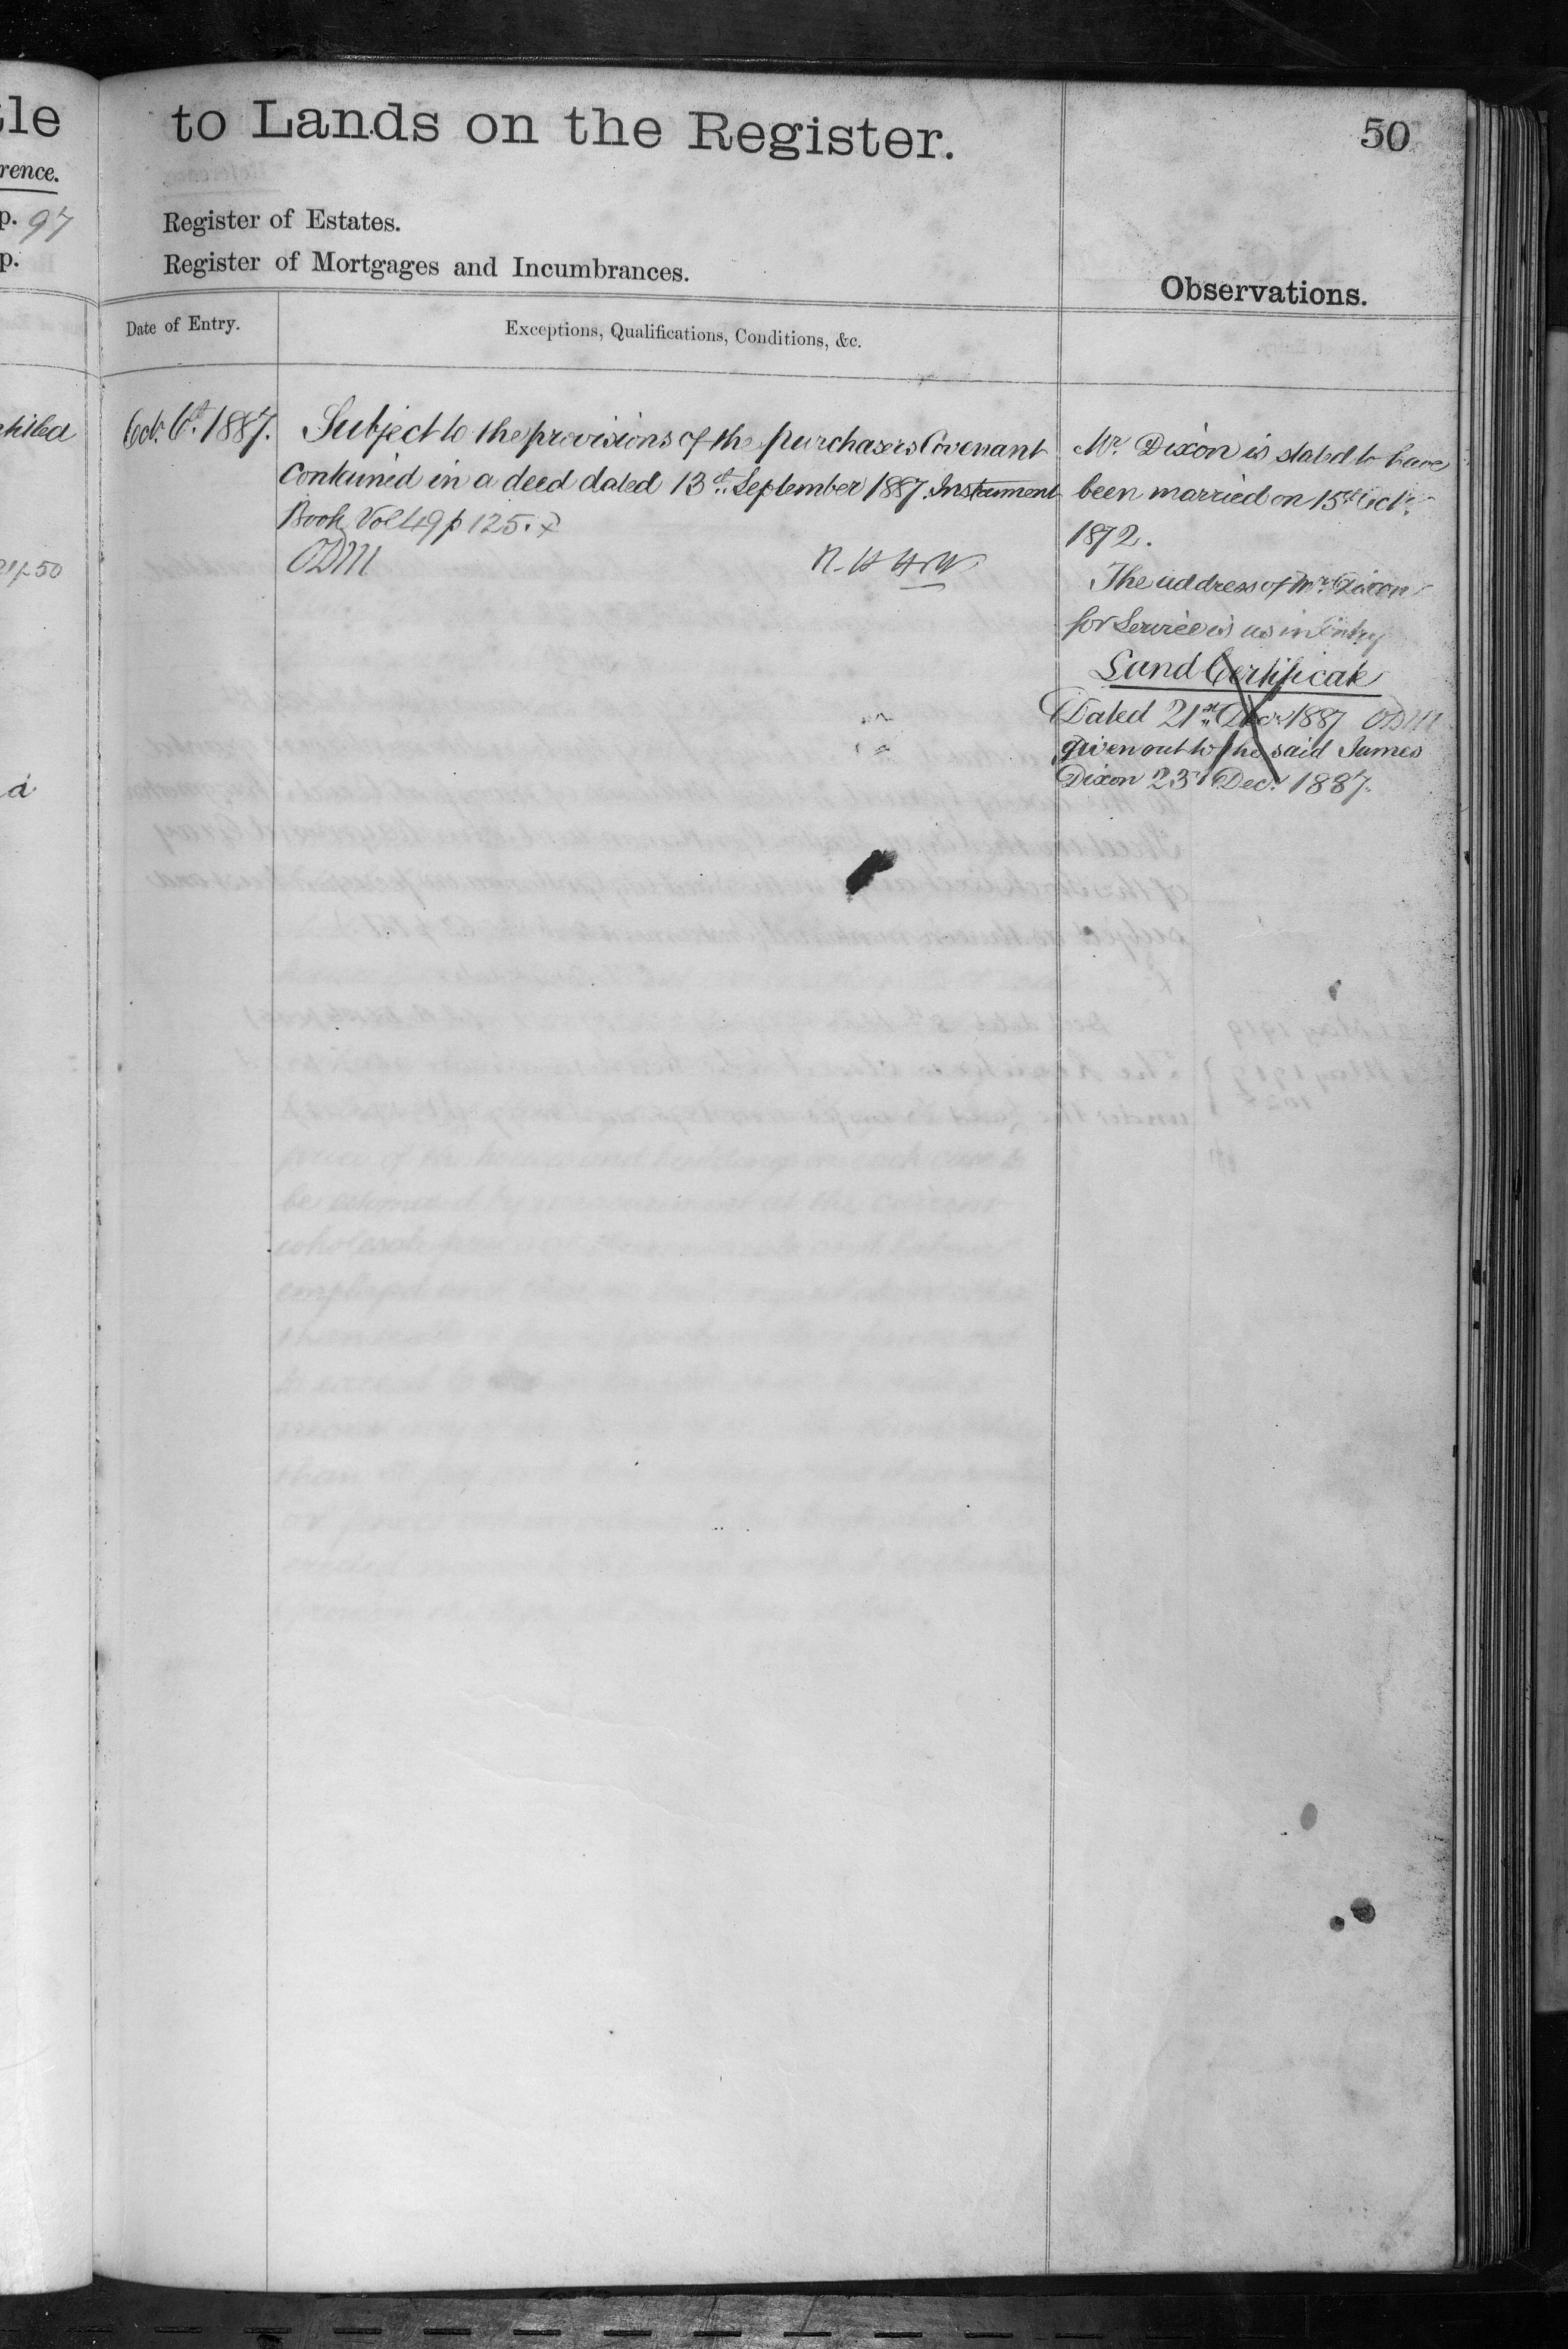 tle
rence.
p. 97
p.
to Lands on the Register.
50
Register of Estates.
Register of Mortgages and Incumbrances.
Observations.
Date of Entry.
Exceptions, Qualifications, Conditions, &c.
Oct. 6th 1887.
Subject to the provisions of the purchasers Covenant
contained in a deed dated 13th September 1887. Instrument
Book Vol 49 p 125.
ODM
Mr. Dixon is stated to have
been married on 15th Octr.
1872.
The address of Mr. Dixon
for Service is as in Entry
Land Certificate
Dated 21st Decr 1887 ODM
given out to the said James
Dixon 23d Decr. 1887.